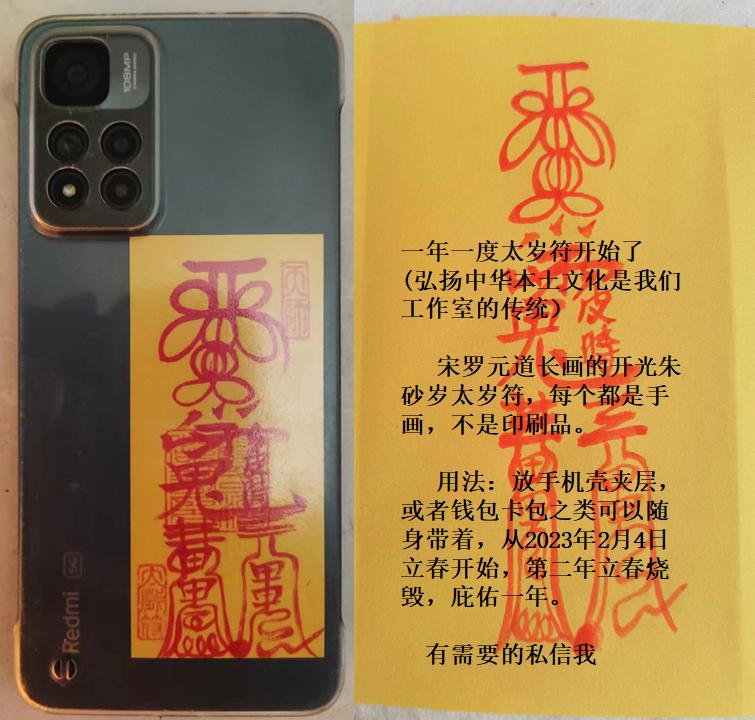 108MP
Redmi
5G
一年一度太岁符开始了
(弘扬中华本土文化是我们
工作室的传统）
宋罗元道长画的开光朱
砂岁太岁符，每个都是手
画，不是印刷品。
用法：放手机壳夹层，
或者钱包卡包之类可以随
身带着，从2023年2月4日
立春开始，第二年立春烧
毁，庇佑一年。
有需要的私信我